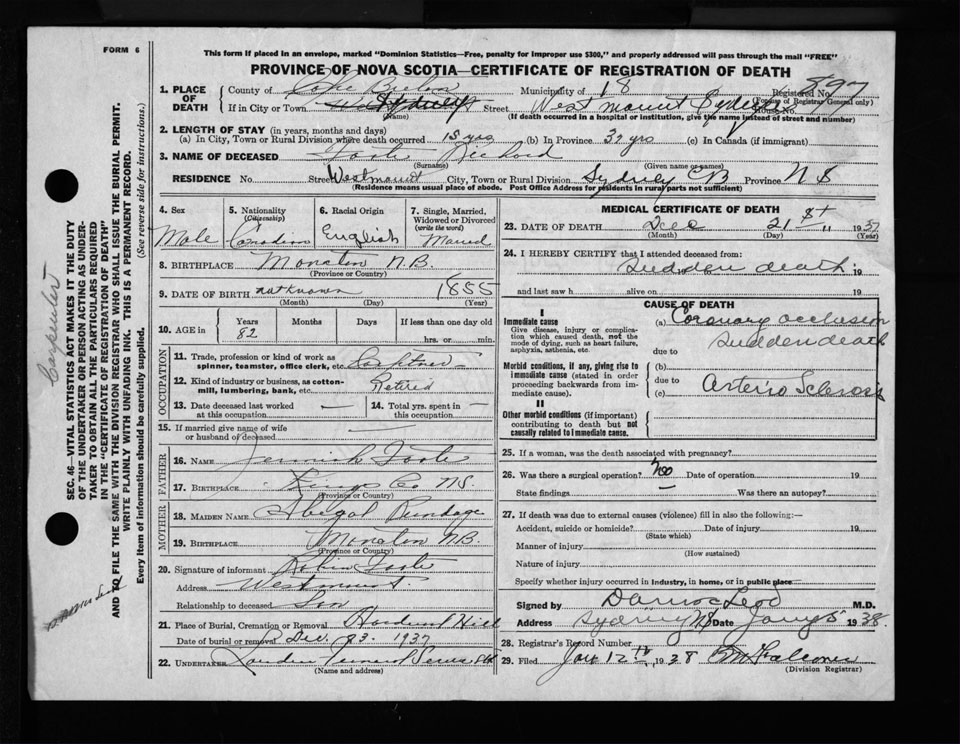 FORM 6
This form if placed in an envelope, marked "Dominion Statistics—Free, penalty for improper use $300," and properly addressed will pass through the mail "FREE"
PROVINCE OF NOVA SCOTIA—CERTIFICATE OF REGISTRATION OF DEATH
1. PLACE OF DEATH
County of Cape Breton Municipality of 18 Registered No. 897
(For use of Registrar General only)
If in City or Town Sydney Street Westmount Sydney House No.
(Name) (If death occurred in a hospital or institution, give the name instead of street and number)
2. LENGTH OF STAY (in years, months and days)
(a) In City, Town or Rural Division where death occurred 18 yrs (b) In Province 37 yrs (c) In Canada (if immigrant)
3. NAME OF DECEASED Foote Richard
(Surname) (Given name or names)
RESIDENCE No. Street Westmount City, Town or Rural Division Sydney CB Province N S
(Residence means usual place of abode. Post Office Address for residents in rural parts not sufficient)
4. Sex Male
5. Nationality (Citizenship) Canadian
6. Racial Origin English
7. Single, Married, Widowed or Divorced (write the word) Married
8. BIRTHPLACE Moncton N.B.
(Province or Country)
9. DATE OF BIRTH not known 1855
(Month) (Day) (Year)
10. AGE in Years Months Days If less than one day old
82 hrs. or min.
OCCUPATION
11. Trade, profession or kind of work as spinner, teamster, office clerk, etc.
12. Kind of industry or business, as cotton-mill, lumbering, bank, etc. Retired
13. Date deceased last worked at this occupation —
14. Total yrs. spent in this occupation —
15. If married give name of wife or husband of deceased —
FATHER
16. NAME Foote
17. BIRTHPLACE Kings Co NS.
(Province or Country)
MOTHER
18. MAIDEN NAME Abigal
19. BIRTHPLACE Moncton N.B.
(Province or Country)
20. Signature of informant Foote
Address Westmount
Relationship to deceased Son
21. Place of Burial, Cremation or Removal Hardwood Hill
Date of burial or removal Dec. 23. 1937
22. UNDERTAKER
(Name and address)
MEDICAL CERTIFICATE OF DEATH
23. DATE OF DEATH Dec 21st 1937
(Month) (Day) (Year)
24. I HEREBY CERTIFY that I attended deceased from:
Sudden death. 19
and last saw h alive on 19
CAUSE OF DEATH
I
Immediate cause
Give disease, injury or complication which caused death, not the mode of dying, such as heart failure, asphyxia, asthenia, etc.
(a) Coronary occlusion
sudden death
due to
Morbid conditions, if any, giving rise to immediate cause (stated in order proceeding backwards from immediate cause).
(b)
due to
(c) Arterio Sclerosis
II
Other morbid conditions (if important) contributing to death but not causally related to immediate cause.
25. If a woman, was the death associated with pregnancy?
26. Was there a surgical operation? no Date of operation 19
State findings — Was there an autopsy?
27. If death was due to external causes (violence) fill in also the following:—
Accident, suicide or homicide? Date of injury 19
(State which)
Manner of injury
(How sustained)
Nature of injury
Specify whether injury occurred in industry, in home, or in public place
Signed by M.D.
Address Sydney NS Date Jany 5 1938.
28. Registrar's Record Number
29. Filed Jan 12th 1938
(Division Registrar)
Carpenter
SEC. 46—VITAL STATISTICS ACT MAKES IT THE DUTY
OF THE UNDERTAKER OR PERSON ACTING AS UNDER-
TAKER TO OBTAIN ALL THE PARTICULARS REQUIRED
IN THE "CERTIFICATE OF REGISTRATION OF DEATH"
AND TO FILE THE SAME WITH THE DIVISION REGISTRAR WHO SHALL ISSUE THE BURIAL PERMIT.
WRITE PLAINLY WITH UNFADING INK. THIS IS A PERMANENT RECORD.
Every item of information should be carefully supplied. (See reverse side for instructions.)